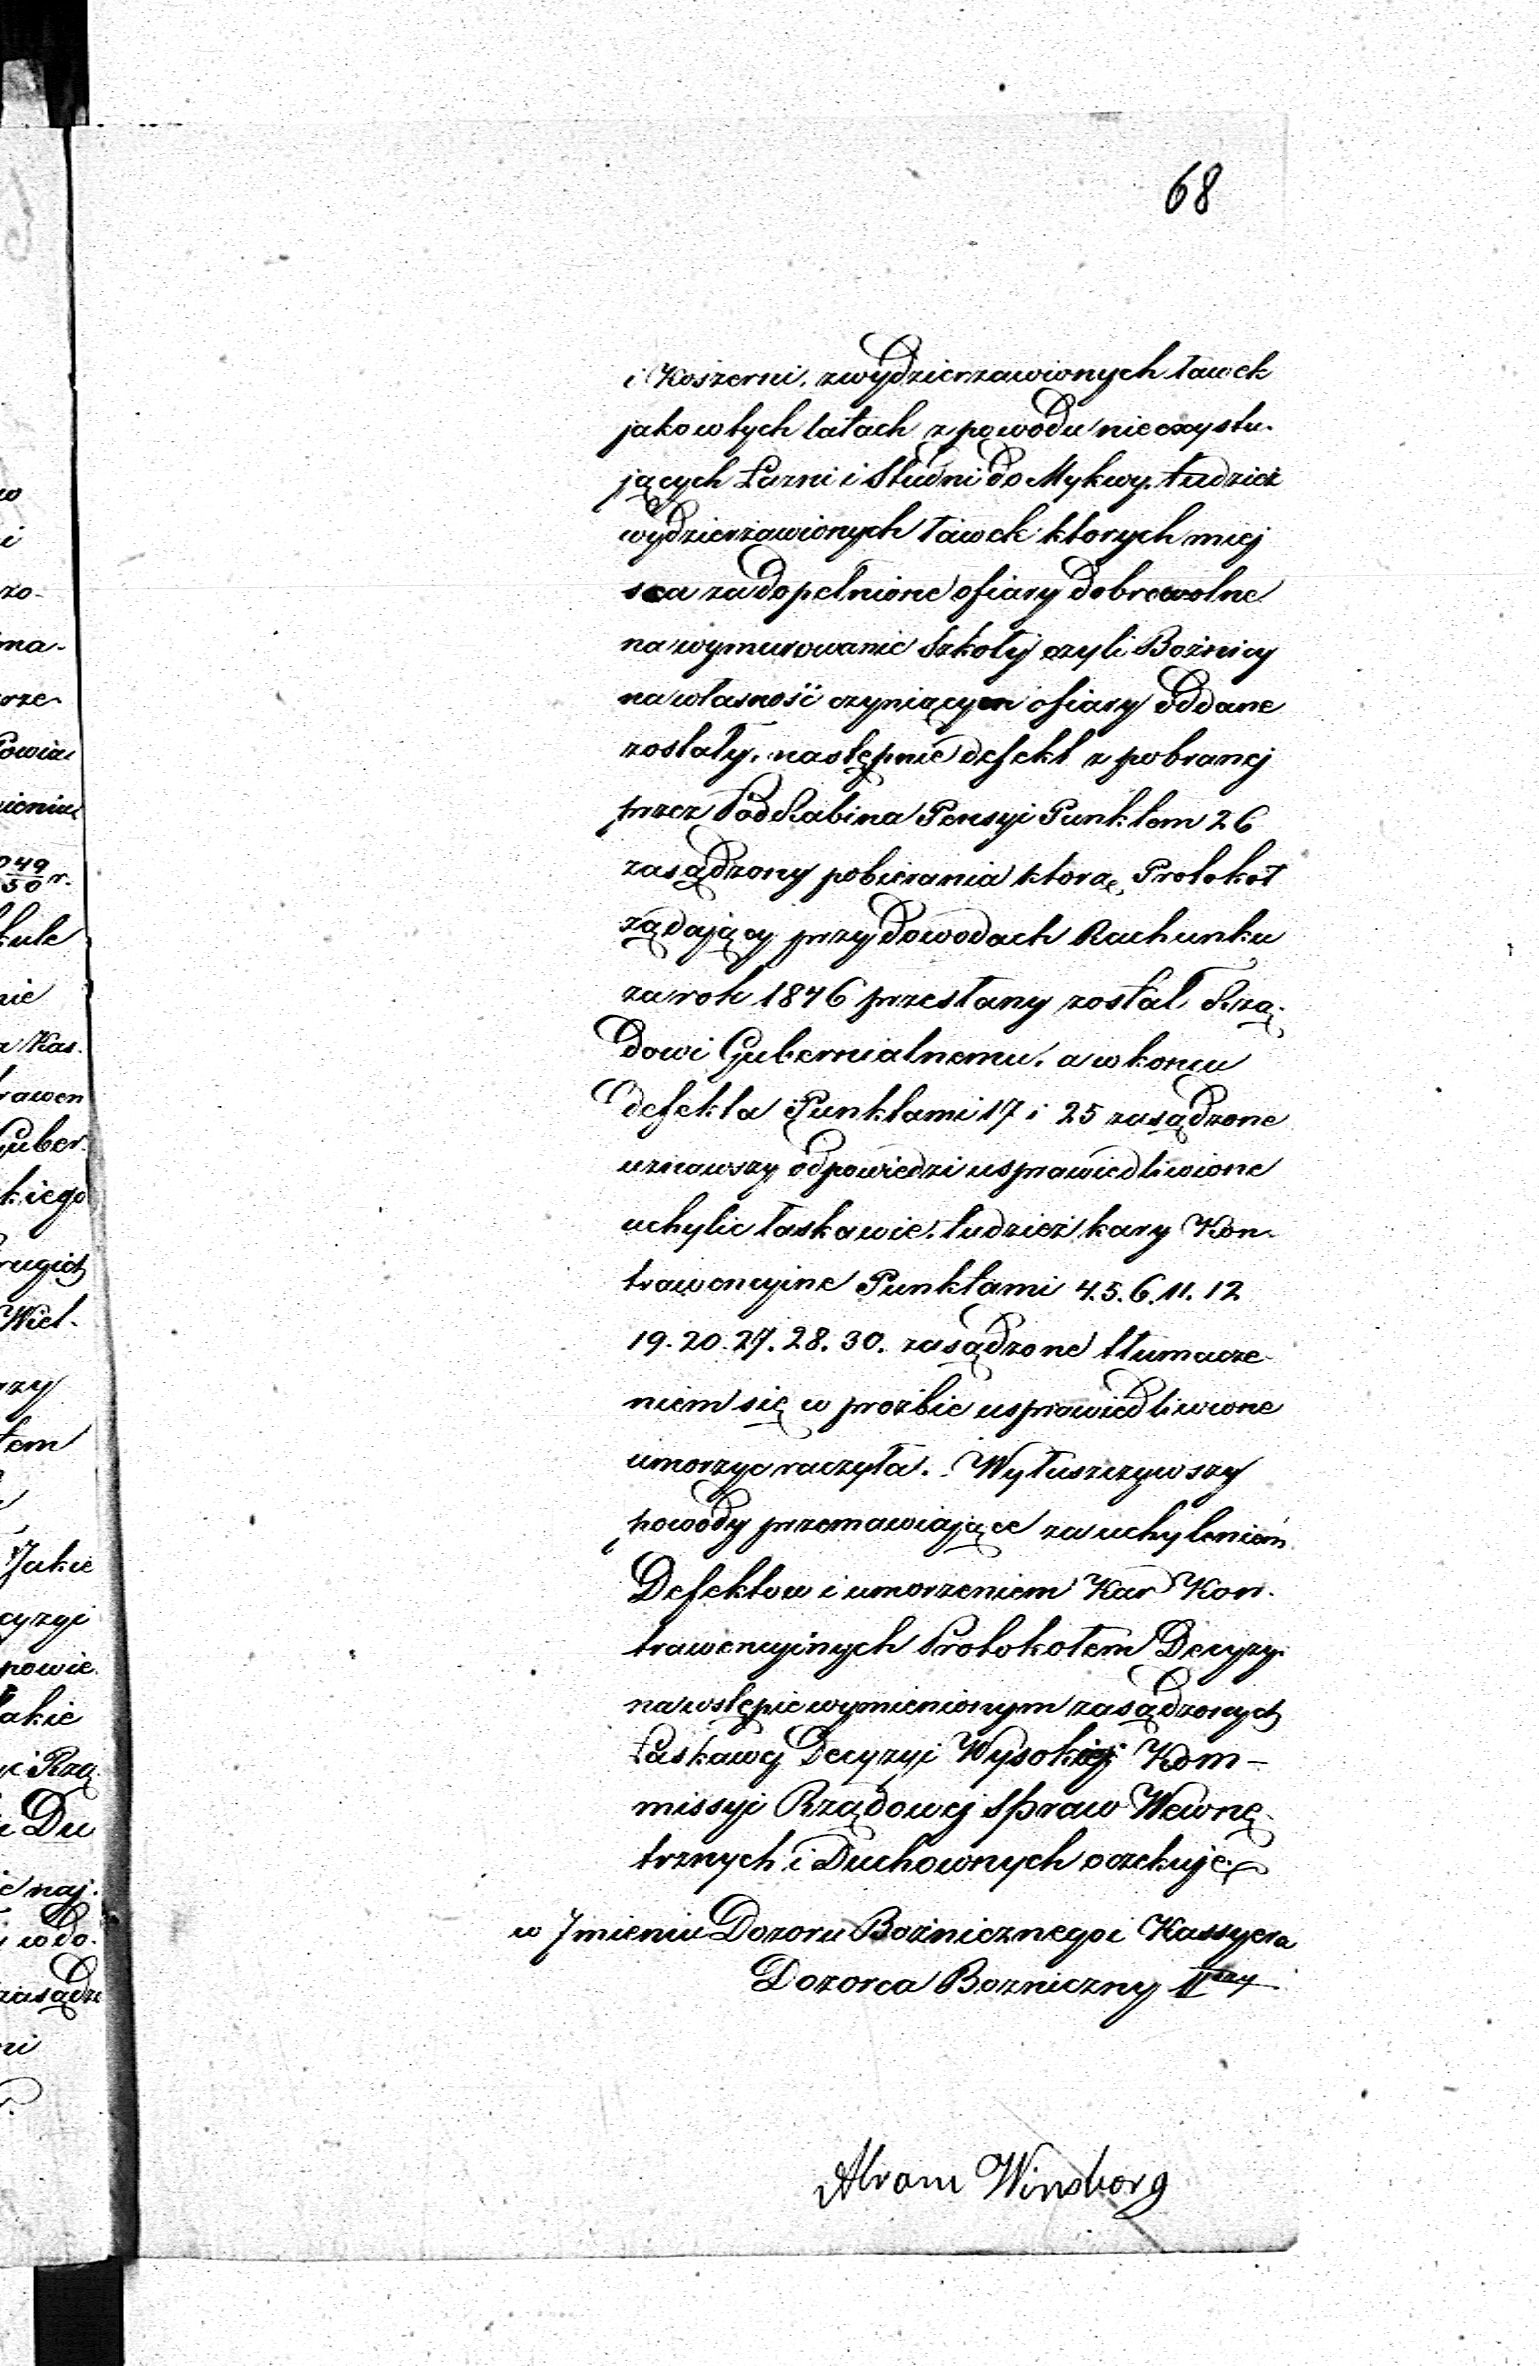 68
i Koszerni, zwydzierzawionych ławek
jako wtych latach z powodu nieexystu-
jących Łazni i Studni do Mykwy, tudzież
wydzierżawionych ławek ktorych miej
sca za dopełnione ofiary dobrowolne
na wymurowanie Szkoły czyli Bożnicy
na własność czyniącym ofiary oddane
zostały, następnie defekt z pobranej
przez PodRabina Pensyi Punktem 26
zasądzony pobierania ktorą Protokoł
żądający przy dowodach Rachunku
za rok 1846 przesłany został Rzą-
dowi Gubernialnemu, a w koncu
defekta Punktami 17 i 25 zasądzone
uznawszy odpowiedzi usprawiedliwione
uchylic łaskawie, tudzież kary Kon-
trawencyjne Punktami 4. 5. 6. 11. 12
19. 20. 27. 28. 30. zasądzone tłumacze-
niem się w prozbie usprawiedliwione
umorzyc raczyła. Wyłuszczywszy
powody przemawiające za uchyleniem
Defektow i umorzeniem Kar Kon-
trawencyjnych Protokołem Decyzyi
na wstępie wymienionym zasądzonych
Łaskawej Decyzyi Wysokiej Kom-
missyi Rządowej Spraw Wewnę-
trznych i Duchownych oczekuje.
w Jmieniu Dozoru Bożnicznego i Kassyera
Dozorca Bozniczny II
Abram Winsborg